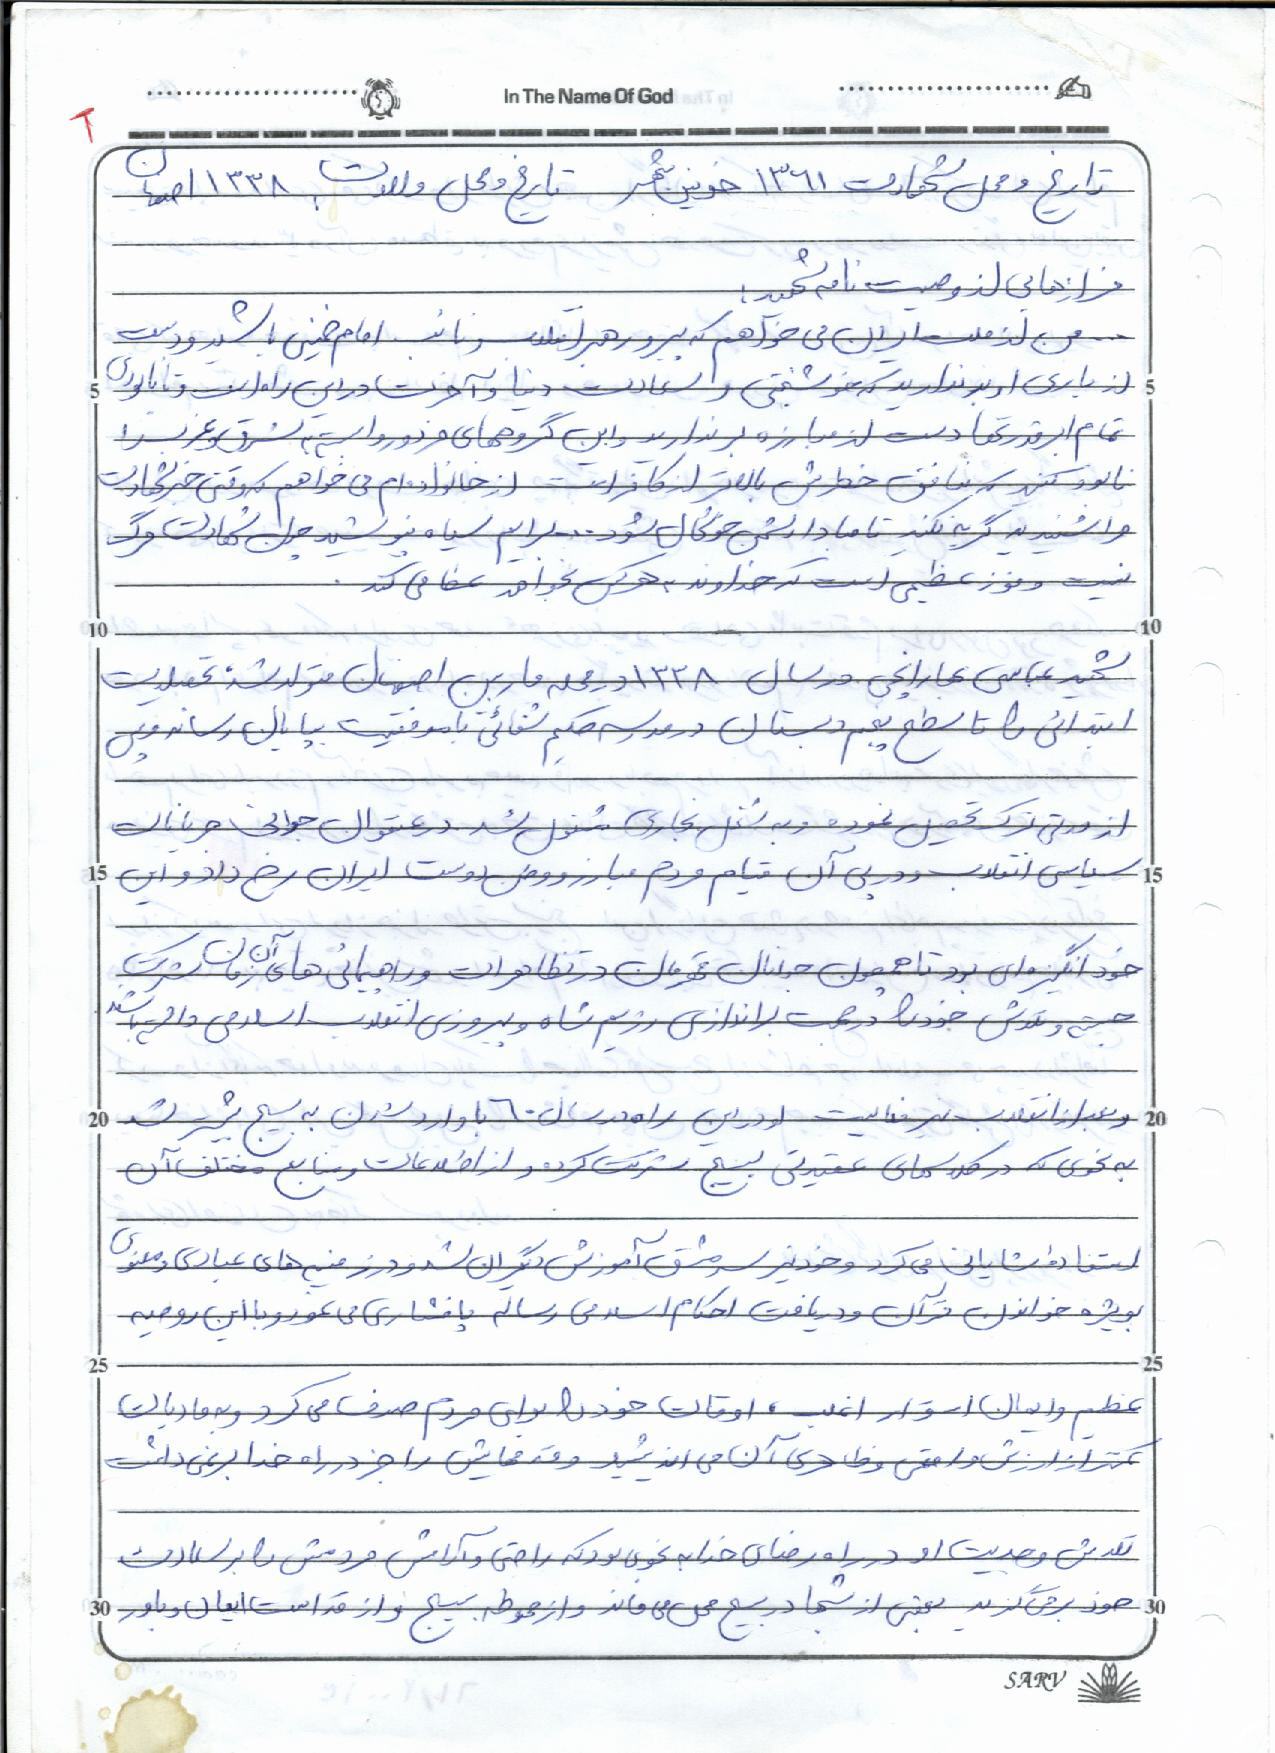 In The Name Of God
تاریخ و محل شهادت ۱۳۶۱ خونین شهر تاریخ و محل ولادت ۱۳۳۸ اصفهان
فرازهایی از وصیت نامه شهید:
... من از ملت ایران می خواهم که پیرو رهبر انقلاب امام خمینی باشید و دست
5 از یاری او بر ندارید که خوشبختی و سعادت دنیا و آخرت در این راه است و تا نابودی 5
تمام ابرقدرتها دست از مبارزه بر ندارید و این گروههای مزدور وابسته به شرق و غرب را
نابود کنید که منافق خطرش بالاتر از کافر است از خانواده ام می خواهم که وقتی خبر شهادت
مرا شنیدید گریه نکنید تا مبادا دشمن خوشحال شود ... برایم سیاه نپوشید چون شهادت مرگ
نیست و فوز عظیمی است که خداوند به هر کس بخواهد عطا می کند.
10 10
شهید عباس در سال ۱۳۳۸ در محله ماربین اصفهان متولد شد تحصیلات
ابتدائی را تا سطح پنجم دبستان در مدرسه حکیم شفائی با موفقیت بپایان رساند و پس
از مدتی ترک تحصیل نموده و به شغل نجاری مشغول شد در عنفوان جوانی جریانات
15 سیاسی انقلاب و در پی آن قیام مردم مبارز و وطن دوست ایران رخ داد و این 15
خود انگیزه ای بود تا همچون جوانان قهرمان در تظاهرات و راهپیمائی های آن زمان شرکت
جسته و تلاش خود را در جهت براندازی رژیم شاه و پیروزی انقلاب اسلامی داشته باشد
20 و بعد از انقلاب نیز فعالیت او در این راه در سال ۶۰ با وارد شدن به بسیج بیشتر شد 20
به نحوی که در کلاسهای عقیدتی بسیج شرکت کرده و از اطلاعات و منابع مختلف آن
استفاده شایانی می کرد و خود نیز سرمشق آموزش دیگران شد و در زمینه های عبادی و معنوی
بویژه خواندن قرآن و دریافت احکام اسلامی رساله پافشاری می نمود و با این روحیه
25 25
عظیم و ایمان استوار اغلب، اوقات خود را برای مردم صرف می کرد و به مادیات
کمتر از ارزش واقعی و ظاهری آن می اندیشید و قدمهایش را جز در راه خدا برنمی داشت
تلاش و جدیت او در راه رضای خدا به نحوی بود که راحتی و آرامش مردمش را بر سعادت
30 خود برمی گزید بعضی از شبها در بسیج محل می ماند و از محوطه بسیج و از قداست ایمان و باور 30
SARV